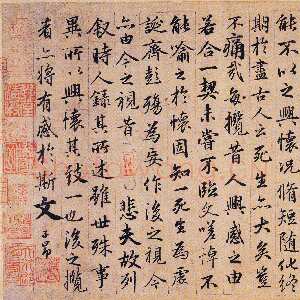 能不以之興懷況脩短隨化終
期於盡古人云死生亦大矣豈
不痛哉每攬昔人興感之由
若合一契未嘗不臨文嗟悼不
能喻之於懷固知一死生為虛
誕齊彭殤為妄作後之視今
亦由今之視昔悲夫故列
敘時人錄其所述雖世殊事
異所以興懷其致一也後之攬
者亦將有感於斯文子昂